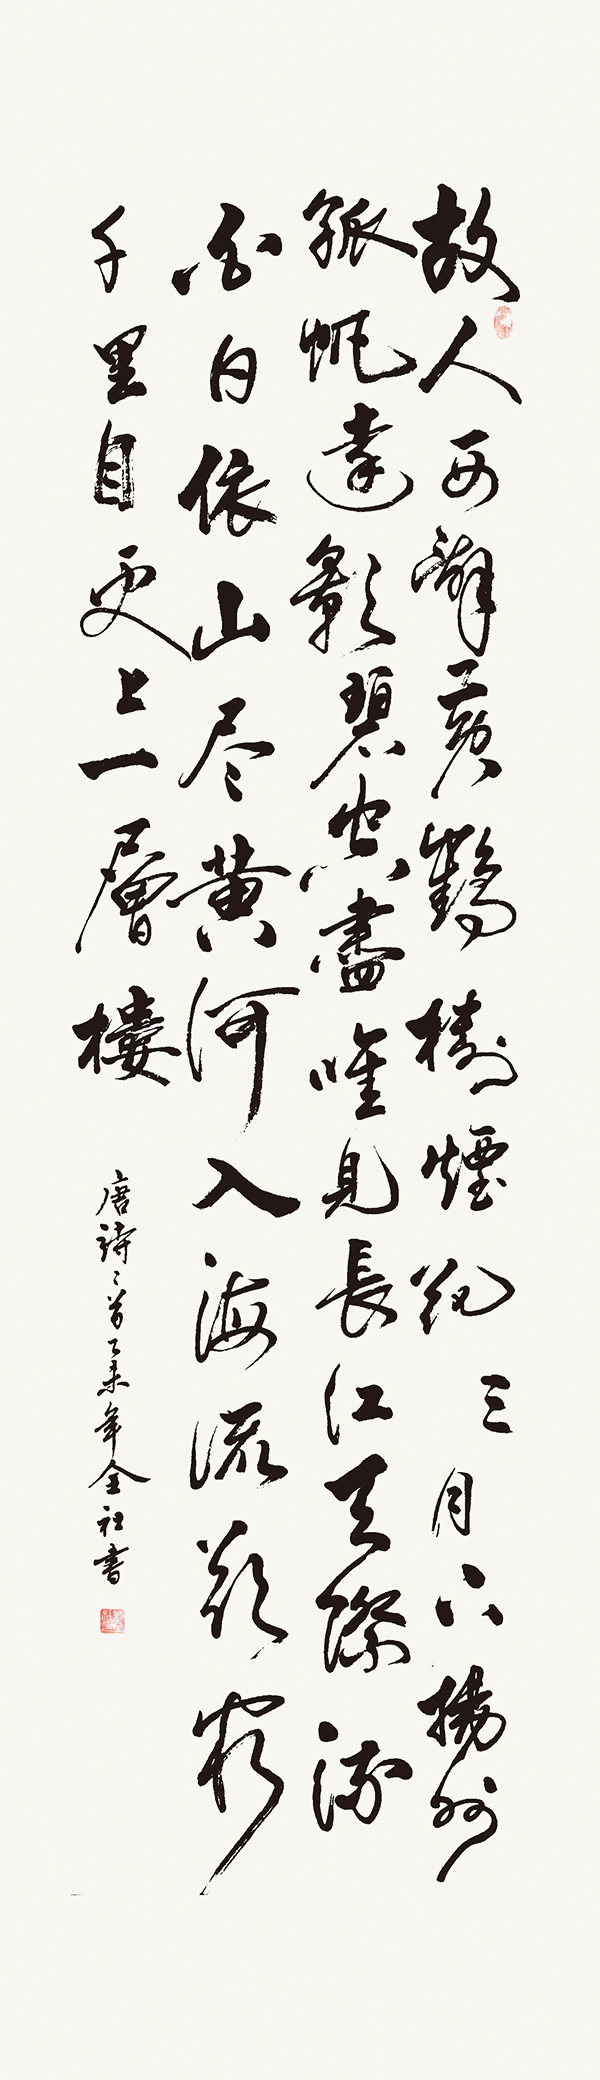 故人西辭黃鶴樓煙花三月下揚州
孤帆遠影碧空盡唯見長江天際流
白日依山尽黄河入海流欲窮
千里目更上一層樓
唐詩二首乙未年全社書